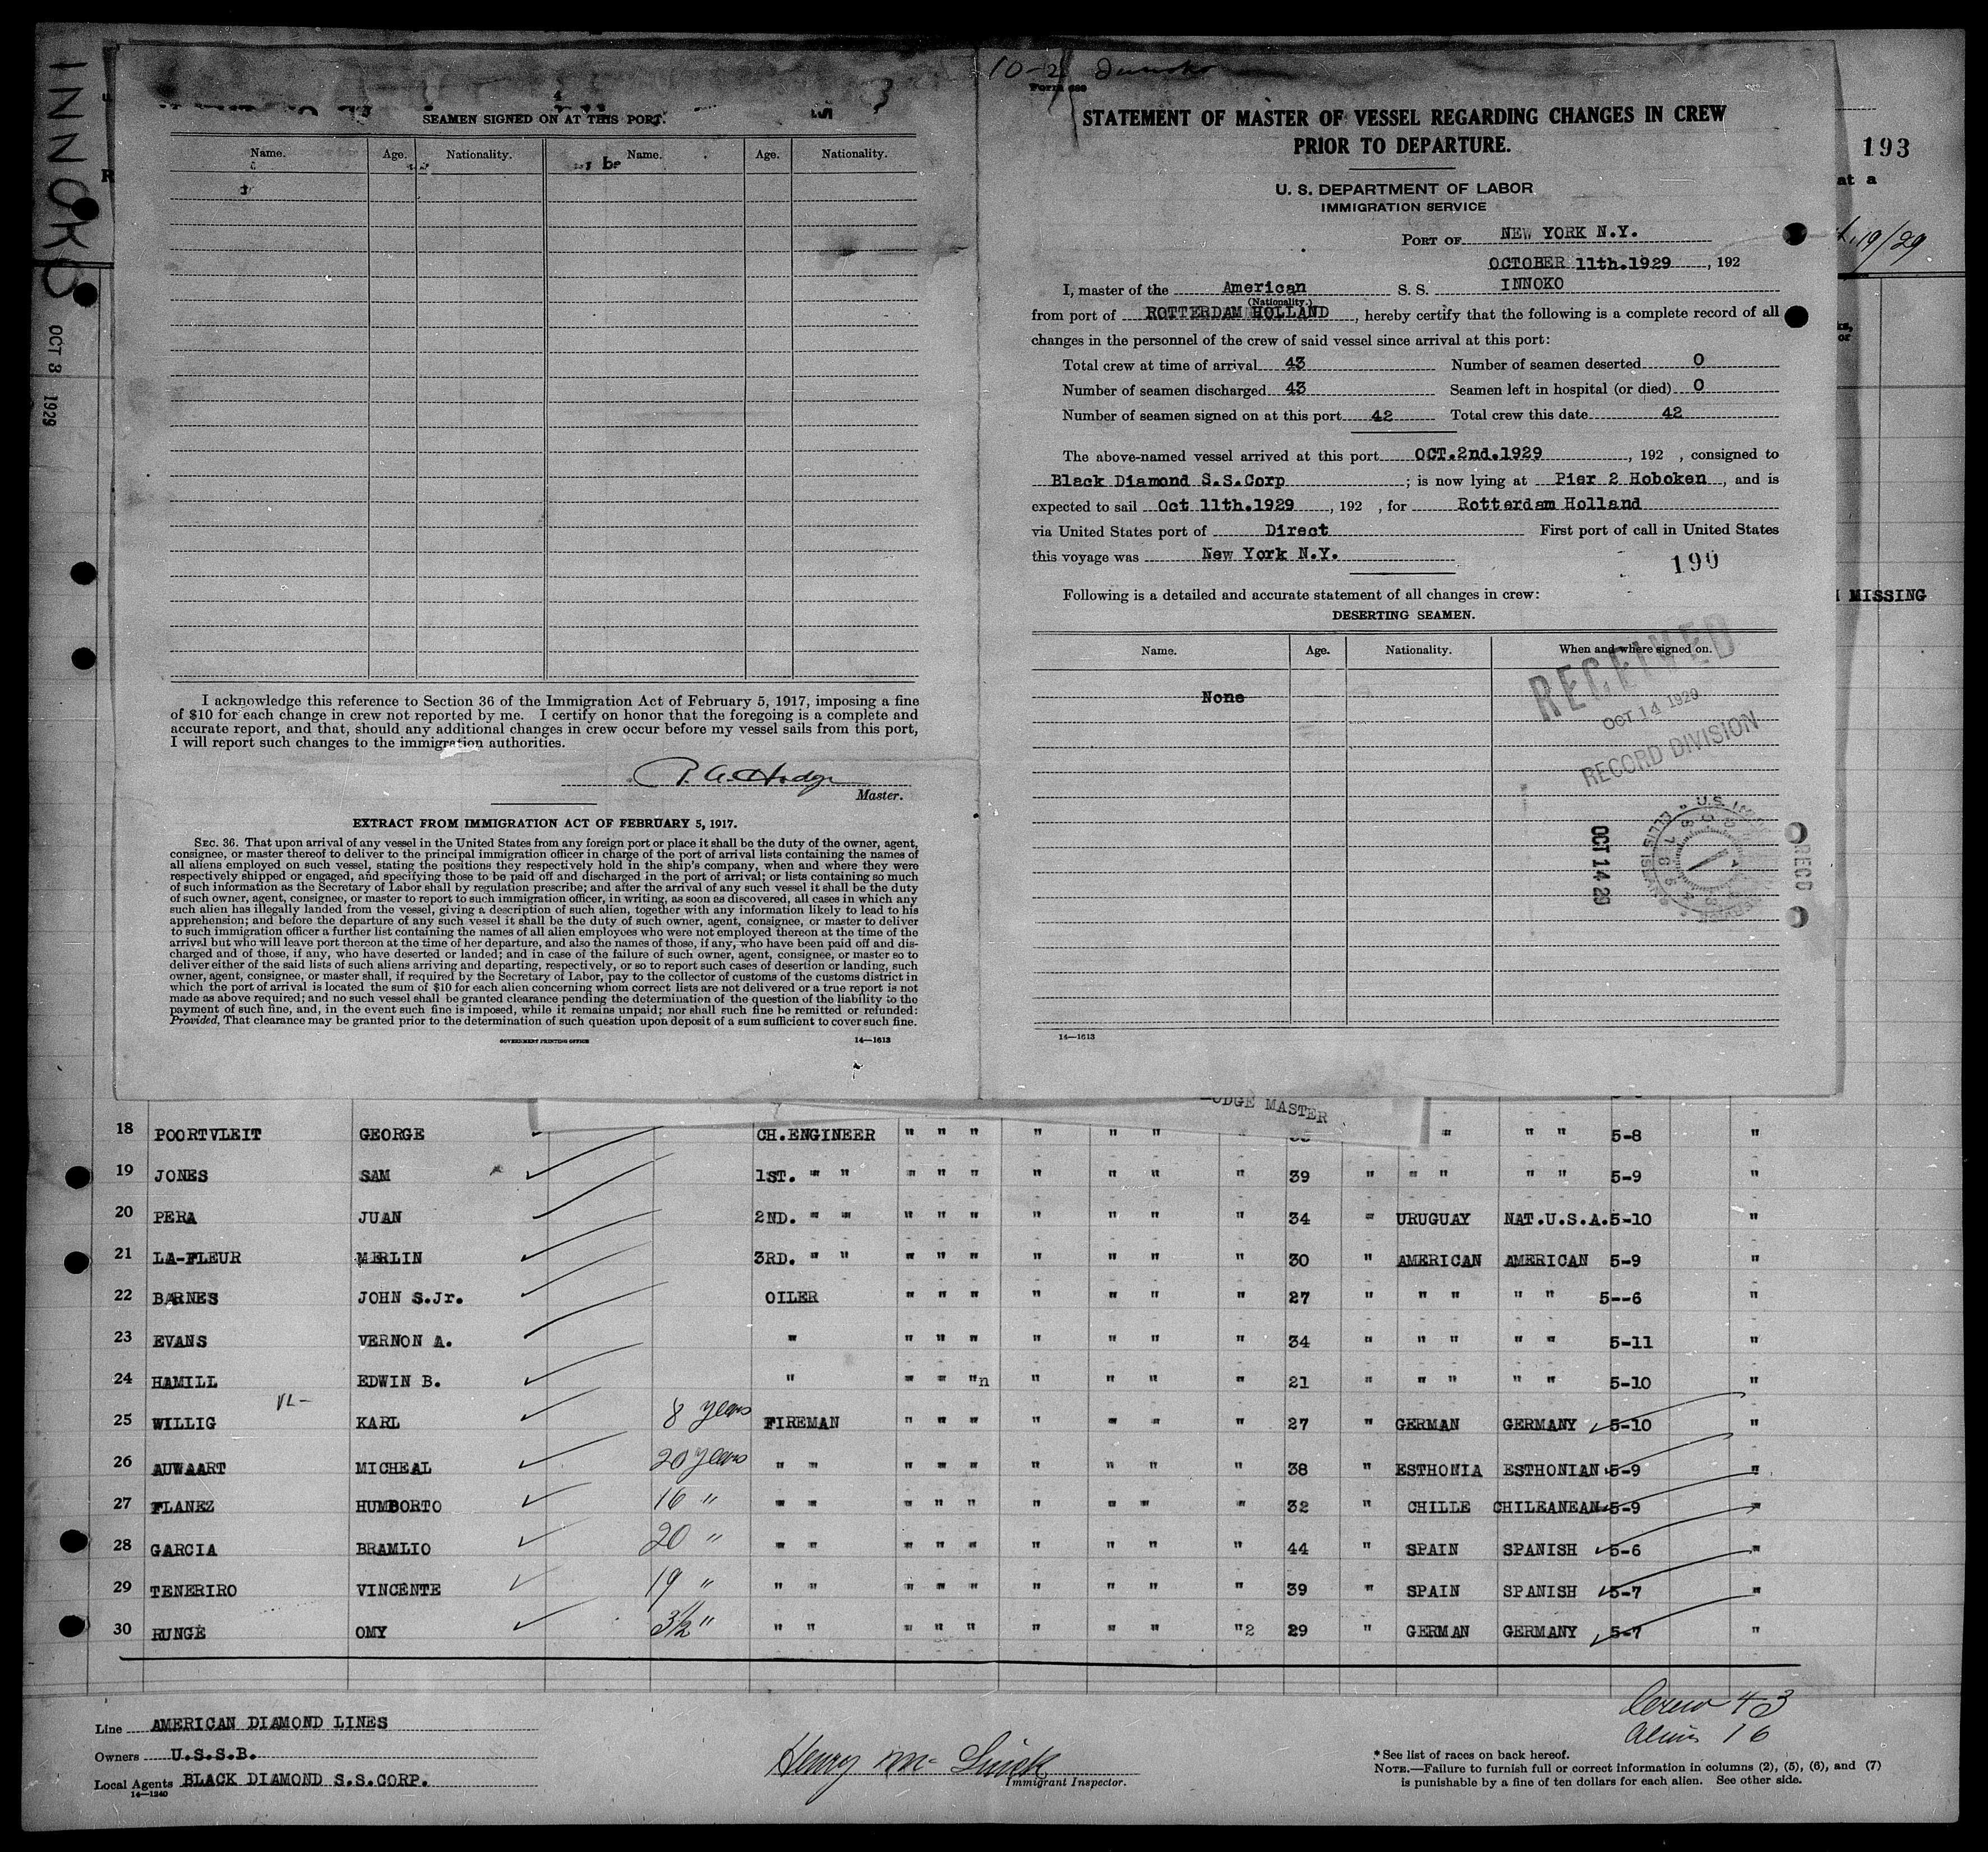 INNOKO
OCT 8 1929
4
SEAMEN SIGNED ON AT THIS PORT.
Name. Age. Nationality. Name. Age. Nationality.
I acknowledge this reference to Section 36 of the Immigration Act of February 5, 1917, imposing a fine
of $10 for each change in crew not reported by me. I certify on honor that the foregoing is a complete and
accurate report, and that, should any additional changes in crew occur before my vessel sails from this port,
I will report such changes to the immigration authorities.
Master.
EXTRACT FROM IMMIGRATION ACT OF FEBRUARY 5, 1917.
SEC. 36. That upon arrival of any vessel in the United States from any foreign port or place it shall be the duty of the owner, agent,
consignee, or master thereof to deliver to the principal immigration officer in charge of the port of arrival lists containing the names of
all aliens employed on such vessel, stating the positions they respectively hold in the ship's company, when and where they were
respectively shipped or engaged, and specifying those to be paid off and discharged in the port of arrival; or lists containing so much
of such information as the Secretary of Labor shall by regulation prescribe; and after the arrival of any such vessel it shall be the duty
of such owner, agent, consignee, or master to report to such immigration officer, in writing, as soon as discovered, all cases in which any
such alien has illegally landed from the vessel, giving a description of such alien, together with any information likely to lead to his
apprehension; and before the departure of any such vessel it shall be the duty of such owner, agent, consignee, or master to deliver
to such immigration officer a further list containing the names of all alien employees who were not employed thereon at the time of the
arrival but who will leave port thereon at the time of her departure, and also the names of those, if any, who have been paid off and dis-
charged and of those, if any, who have deserted or landed; and in case of the failure of such owner, agent, consignee, or master so to
deliver either of the said lists of such aliens arriving and departing, respectively, or so to report such cases of desertion or landing, such
owner, agent, consignee, or master shall, if required by the Secretary of Labor, pay to the collector of customs of the customs district in
which the port of arrival is located the sum of $10 for each alien concerning whom correct lists are not delivered or a true report is not
made as above required; and no such vessel shall be granted clearance pending the determination of the question of the liability to the
payment of such fine, and, in the event such fine is imposed, while it remains unpaid; nor shall such fine be remitted or refunded:
Provided, That clearance may be granted prior to the determination of such question upon deposit of a sum sufficient to cover such fine.
GOVERNMENT PRINTING OFFICE 14—1613
10-2 Innoko
Form 689
STATEMENT OF MASTER OF VESSEL REGARDING CHANGES IN CREW
PRIOR TO DEPARTURE.
U. S. DEPARTMENT OF LABOR
IMMIGRATION SERVICE
PORT OF NEW YORK N.Y.
OCTOBER 11th.1929, 192
I, master of the American S. S. INNOKO
(Nationality.)
from port of ROTTERDAM HOLLAND, hereby certify that the following is a complete record of all
changes in the personnel of the crew of said vessel since arrival at this port:
Total crew at time of arrival 43 Number of seamen deserted 0
Number of seamen discharged 43 Seamen left in hospital (or died) 0
Number of seamen signed on at this port 42 Total crew this date 42
The above-named vessel arrived at this port OCT.2nd.1929, 192 , consigned to
Black Diamond S.S.Corp; is now lying at Pier 2 Hoboken, and is
expected to sail Oct 11th.1929, 192 , for Rotterdam Holland
via United States port of Direct First port of call in United States
this voyage was New York N.Y.
190
Following is a detailed and accurate statement of all changes in crew:
DESERTING SEAMEN.
Name. Age. Nationality. When and where signed on.
None
RECEIVED
OCT 14 1929
RECORD DIVISION
OCT 14 29
RECD
14—1613
193
at a
19/29
MISSING
HODGE MASTER
18 POORTVLEIT GEORGE CH.ENGINEER " " " " " " " " " " " 5-8 "
19 JONES SAM 1ST. " " " " " " " " " 39 " " " " " 5-9 "
20 PERA JUAN 2ND. " " " " " " " " " 34 " URUGUAY NAT.U.S.A. 5-10 "
21 LA-FLEUR MERLIN 3RD. " " " " " " " " " 30 " AMERICAN AMERICAN 5-9 "
22 BARNES JOHN S.Jr. OILER " " " " " " " 27 " " " " " 5--6 "
23 EVANS VERNON A. " " " " " " " " 34 " " " " " 5-11 "
24 HAMILL EDWIN B. " " " "n " " " " 21 " " " " " 5-10 "
25 WILLIG KARL 8 years FIREMAN " " " " " " " 27 " GERMAN GERMANY 5-10 "
26 AUWAART MICHEAL 20 years " " " " " " " " " 38 " ESTHONIA ESTHONIAN 5-9 "
27 FLANEZ HUMBORTO 16 " " " " " " " " " " 32 " CHILLE CHILEANEAN 5-9 "
28 GARCIA BRAMLIO 20 " " " " " " " " " " 44 " SPAIN SPANISH 5-6 "
29 TENERIRO VINCENTE 19 " " " " " " " " " " 39 " SPAIN SPANISH 5-7 "
30 RUNGE OMY 3½ " " " " " " " " " "2 29 " GERMAN GERMANY 5-7 "
Crew 43
Aliens 16
Line AMERICAN DIAMOND LINES
Owners U.S.S.B.
Local Agents BLACK DIAMOND S.S.CORP.
14—1240
Henry
Immigrant Inspector.
* See list of races on back hereof.
NOTE.—Failure to furnish full or correct information in columns (2), (5), (6), and (7)
is punishable by a fine of ten dollars for each alien. See other side.